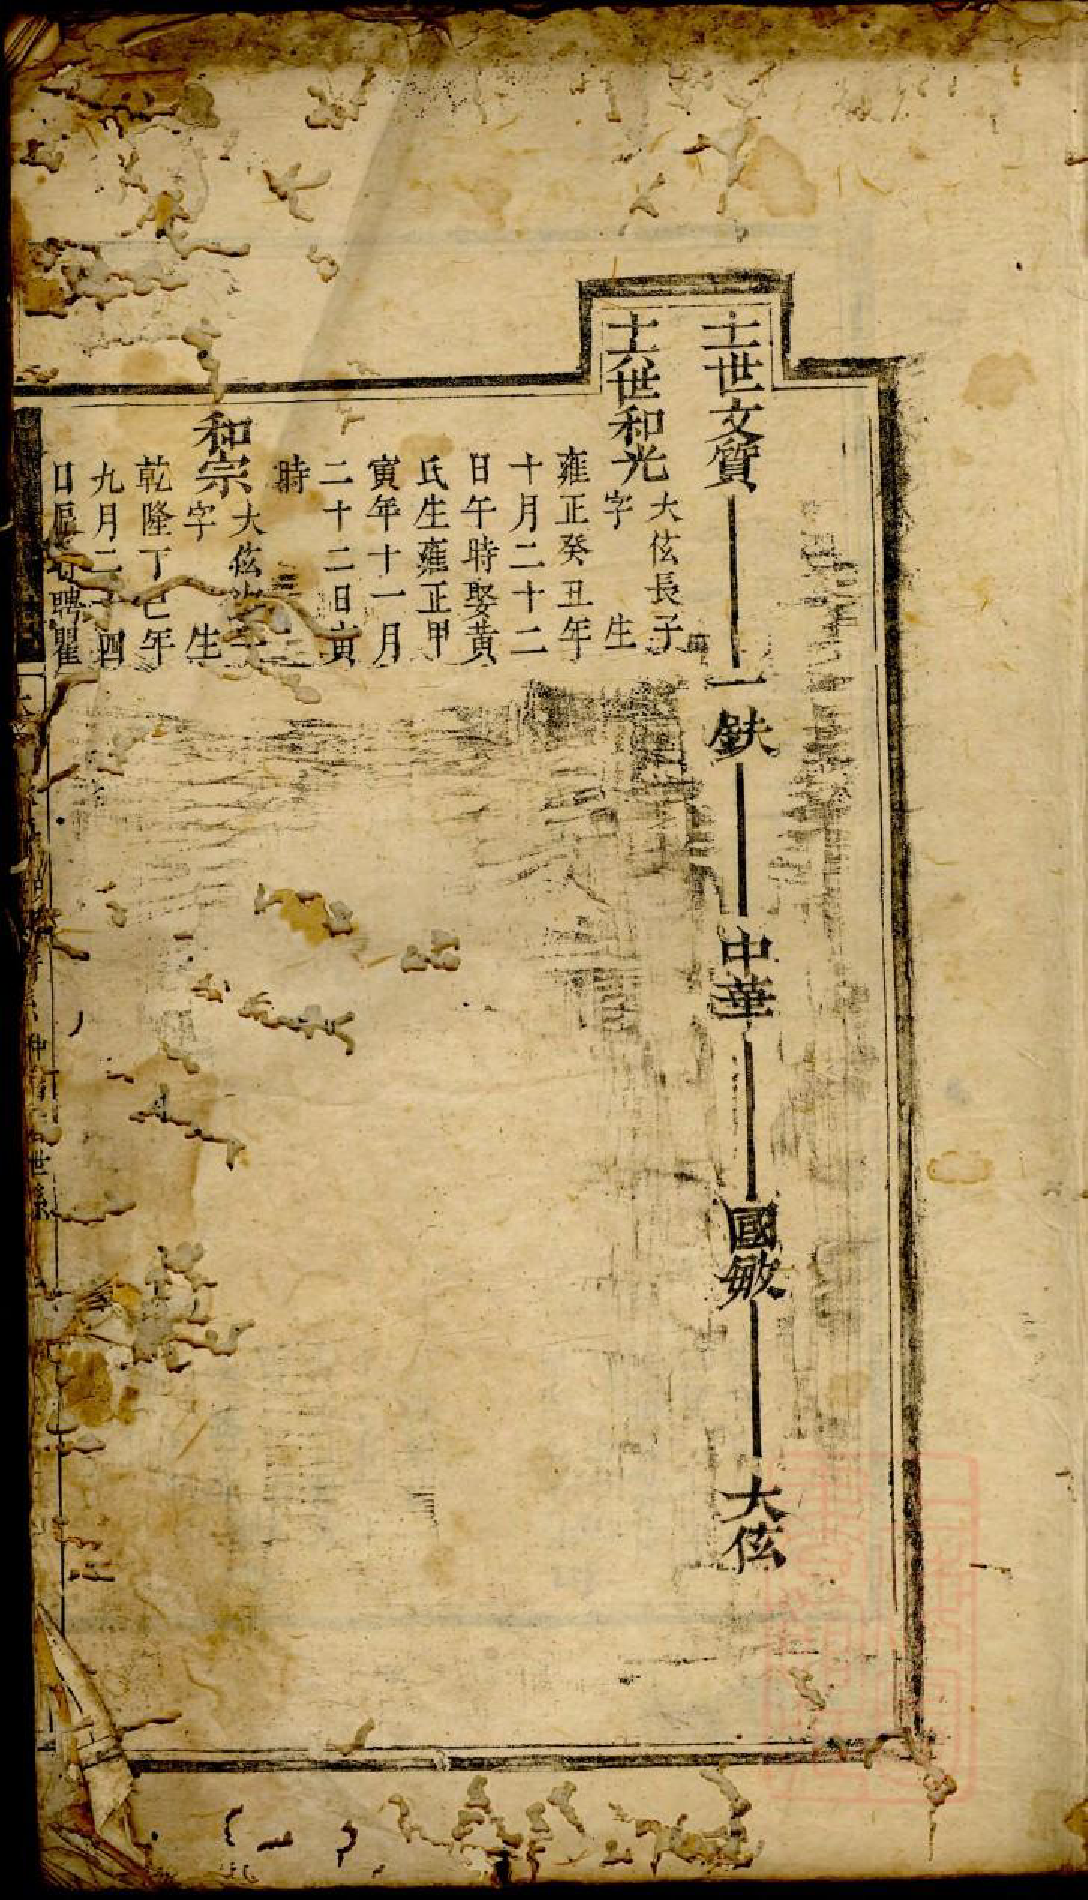 十一世文質 一鈇 中華 國敏 大伭
十六世和光
大伭長子
字 生
雍正癸丑年
十月二十二
日午時娶黃
氏生雍正甲
寅年十一月
二十二日寅
時
和宗
大伭
字 生
乾隆丁巳年
九月二十四
日 時聘瞿